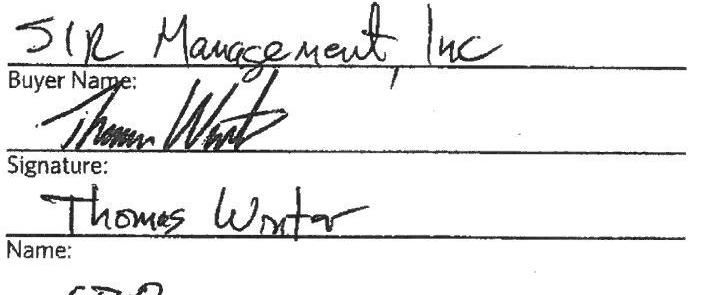 SIR Management, Inc
Buyer Name:
Thomas Winter
Signature:
Thomas Winter
Name: